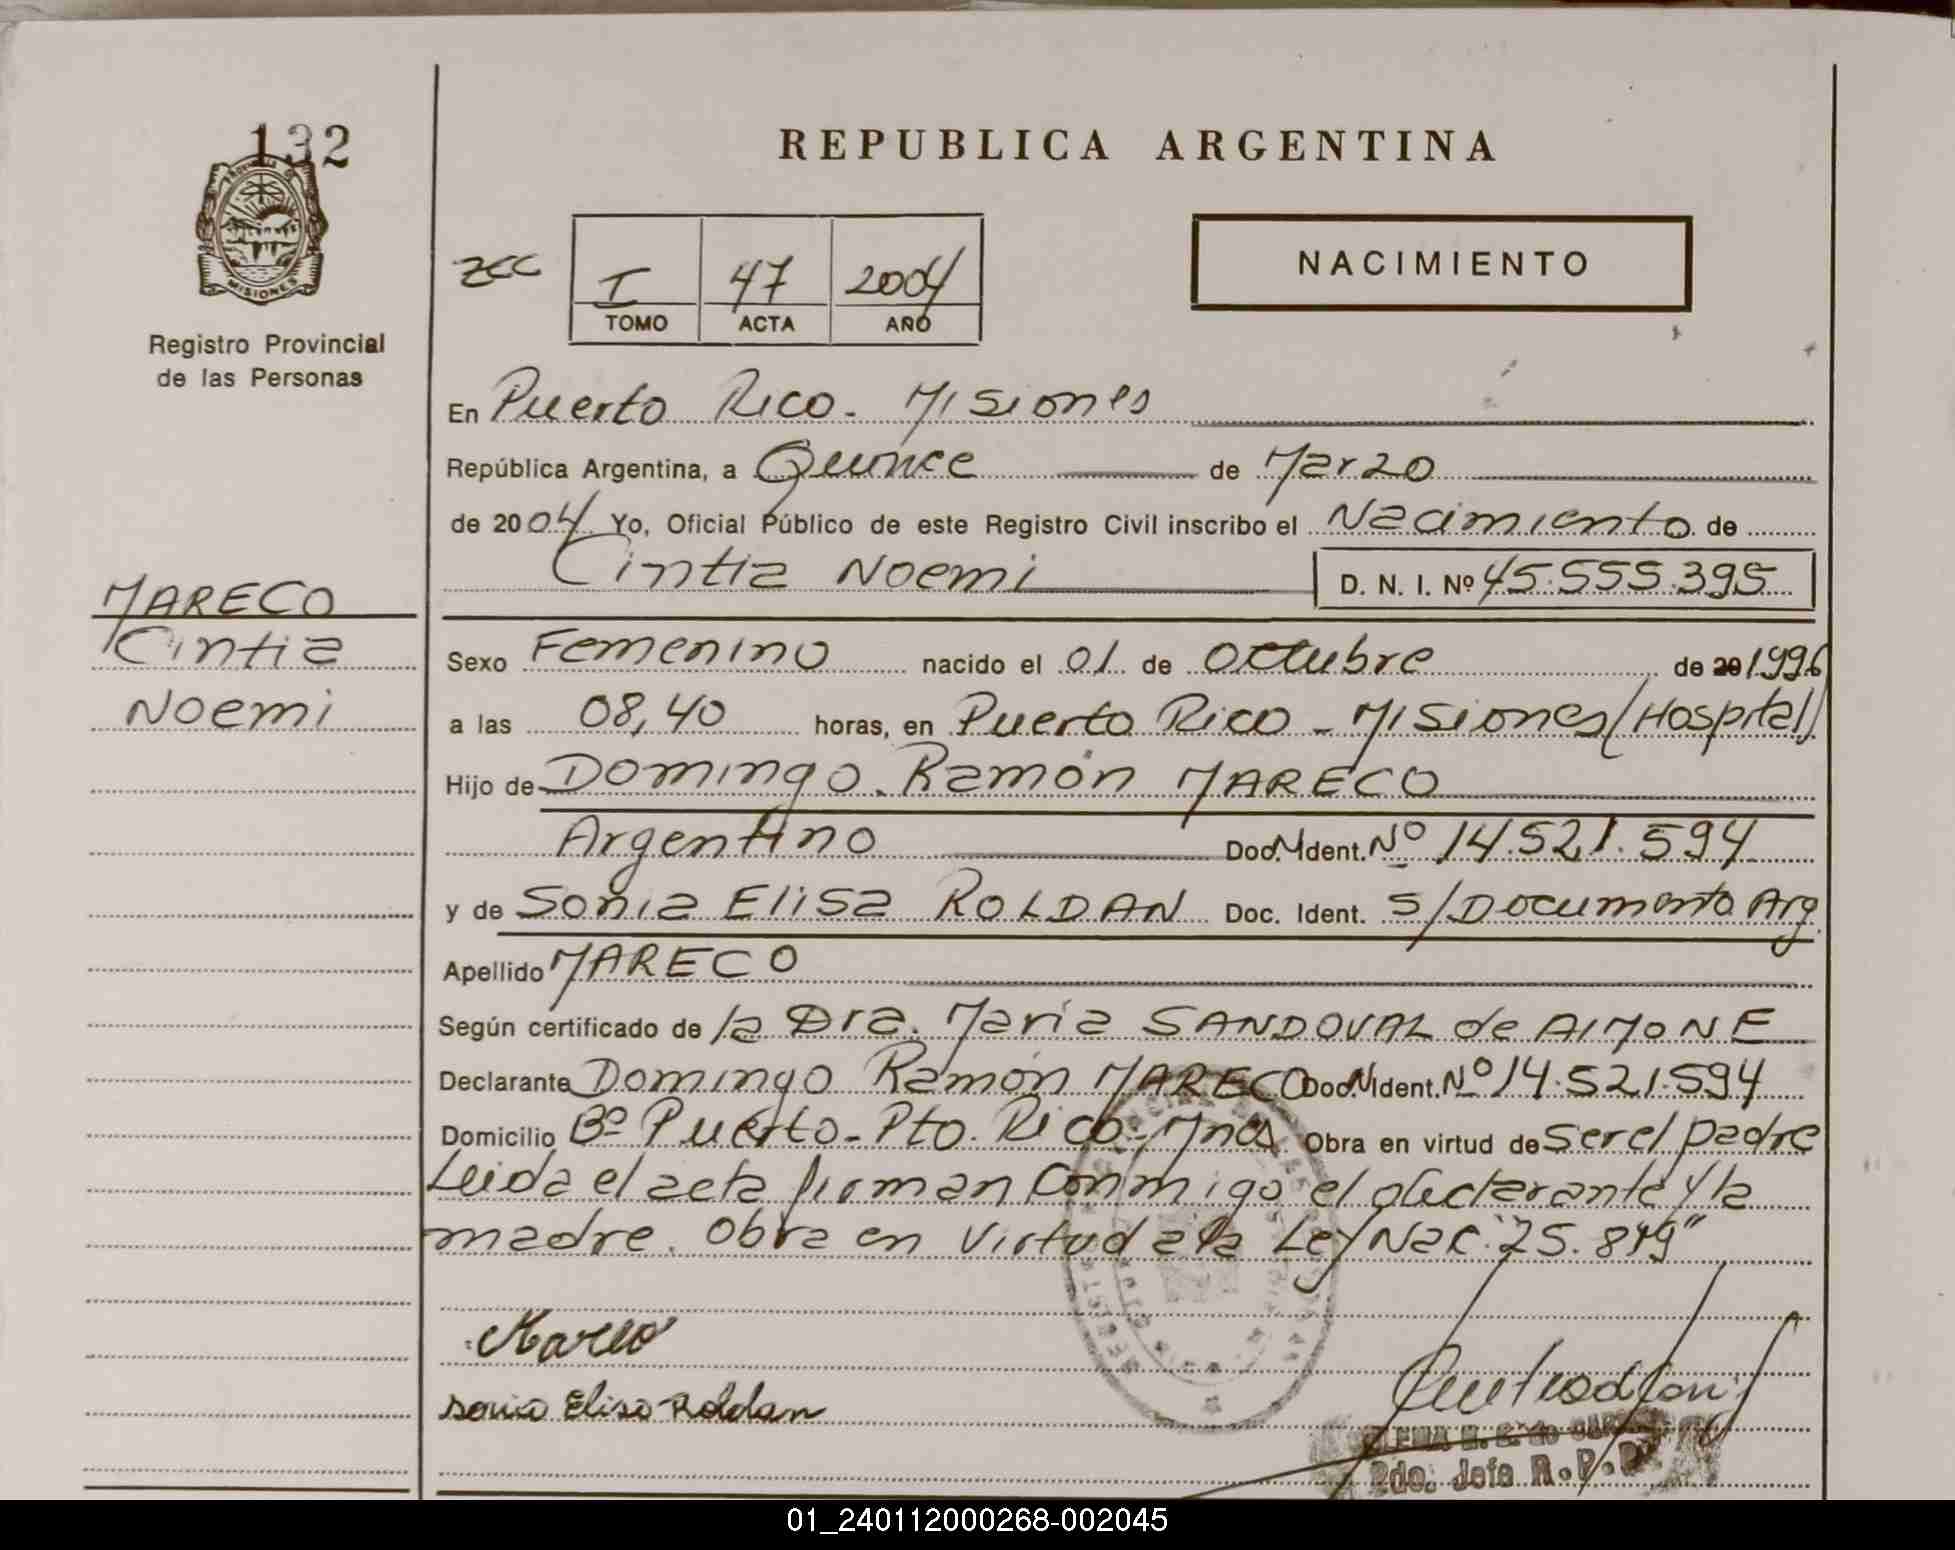 132
REPUBLICA ARGENTINA
MISIONES
Registro Provincial
de las Personas
I 47 2004
TOMO ACTA AÑO
NACIMIENTO
En Puerto Rico - Misiones
República Argentina, a Quince de Marzo
de 2004 Yo, Oficial Público de este Registro Civil inscribo el Nacimiento de
Cintia Noemi D. N. I. Nº 45.555.395
MARECO
Cintia
Noemi
Sexo Femenino nacido el 01 de Octubre de 20 1996
a las 08,40 horas, en Puerto Rico - Misiones (Hospital)
Hijo de Domingo Ramón MARECO
Argentino Doc. Ident. Nº 14.521.594
y de Sonia Elisa ROLDAN Doc. Ident. S/Documento Arg.
Apellido MARECO
Según certificado de la Dra. Maria SANDOVAL de AIMONE
Declarante Domingo Ramón MARECO Doc. Ident. Nº 14.521.594
Domicilio Bº Puerto - Pto. Rico - Mnes Obra en virtud de ser el padre
Leida el acta firman conmigo el declarante y la
madre. Obra en virtud a la Ley Nac. "25.819"
Mareco
Sonia Elisa Roldan
2do. Jefe R.P.P.
01_240112000268-002045